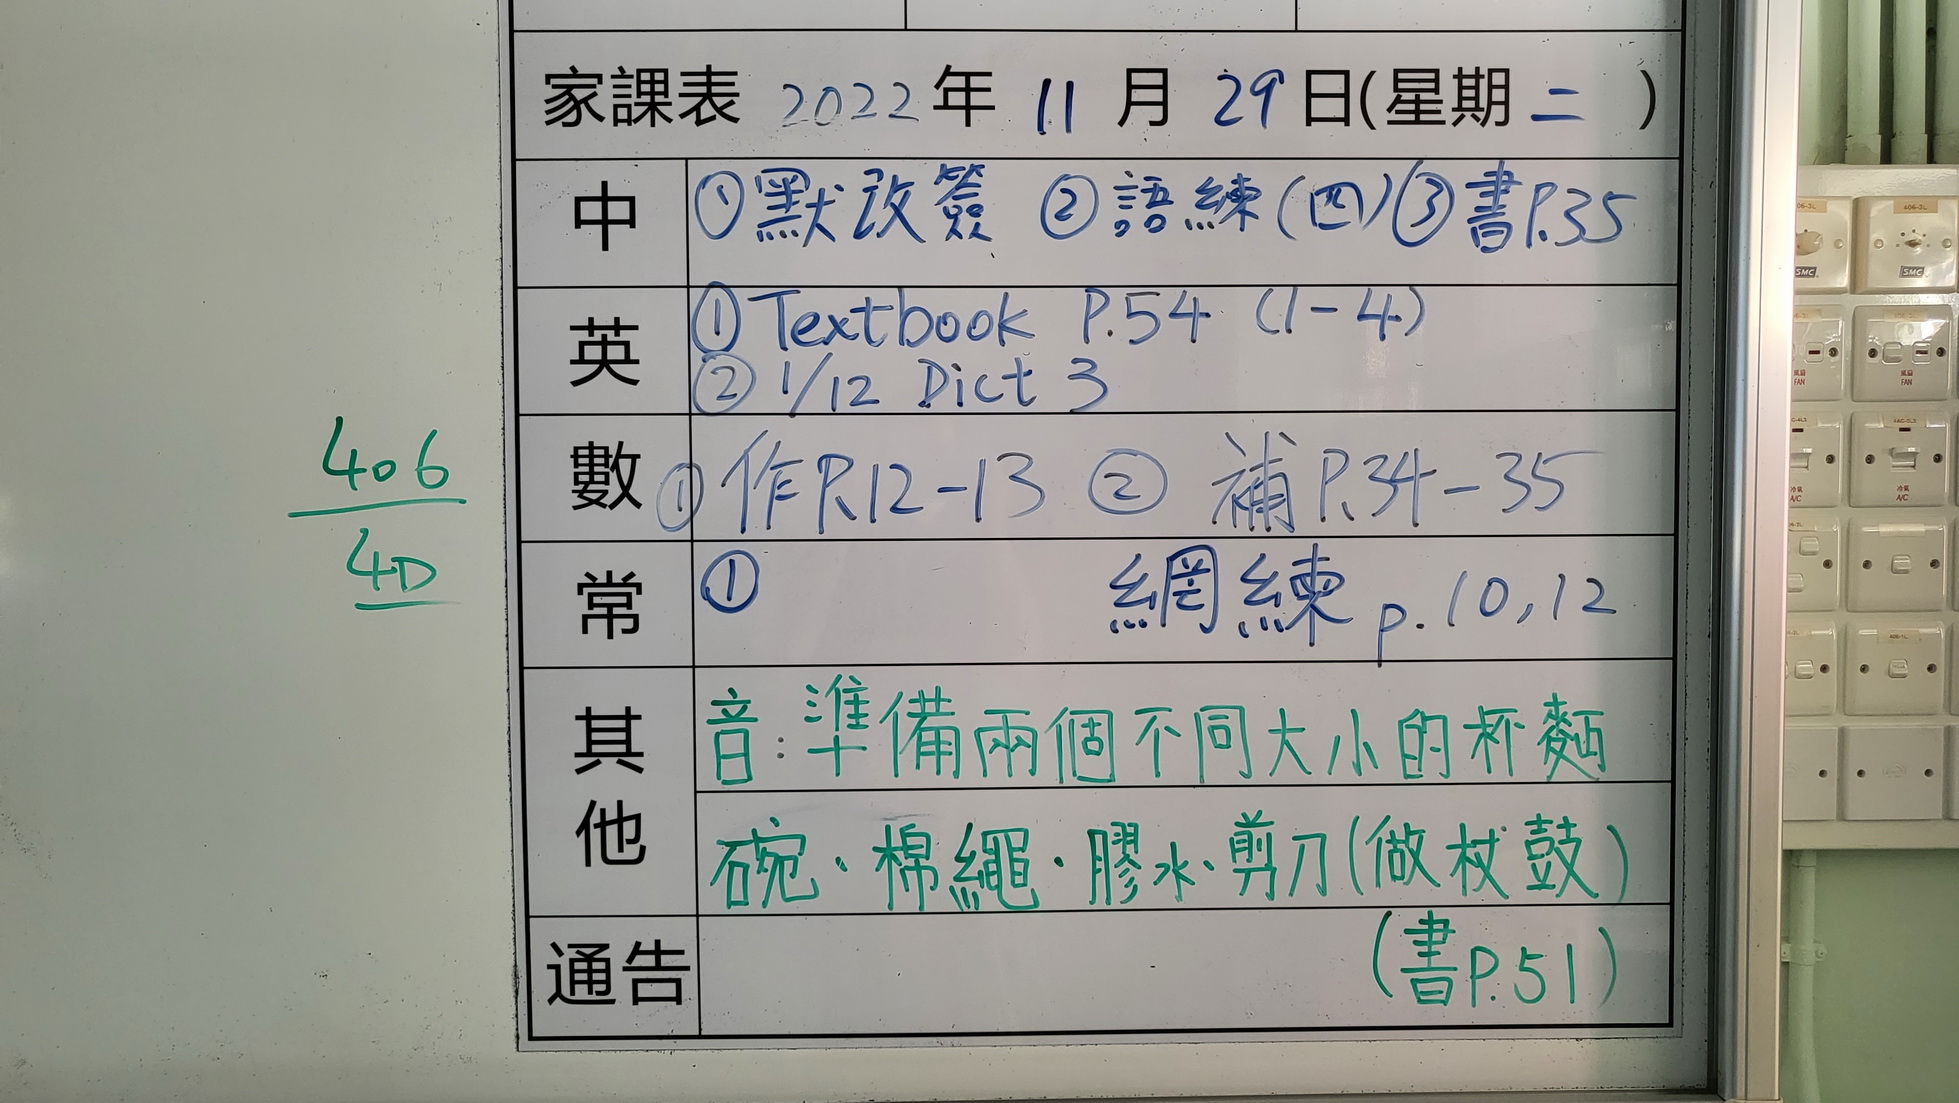 家課表 2022 年 11 月 29 日(星期 二 )
中 ①默改簽 ②語練(四) ③書P.35
英 ①Textbook P.54 (1-4)
②1/12 Dict 3
數 ①作P.12-13 ② 補P.34-35
常 ① 網練 p.10,12
其他 音:準備兩個不同大小的杯麵
碗、棉繩、膠水、剪刀(做杖鼓)
通告 (書P.51)
406
4D
SMC
SMC
風扇
FAN
風扇
FAN
冷氣
A/C
冷氣
A/C